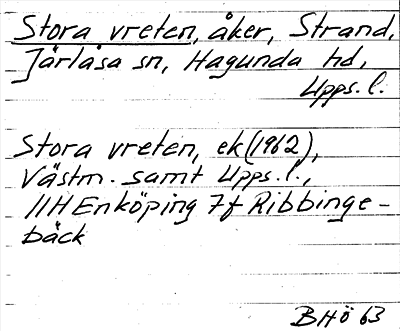 Stora vreten, åker, Strand,
Järlåsa sn, Hagunda hd,
Upps. l.
Stora vreten, ek (1962),
Västm. samt Upps. l.,
11H Enköping 7f Ribbinge-
bäck
BHÖ 63